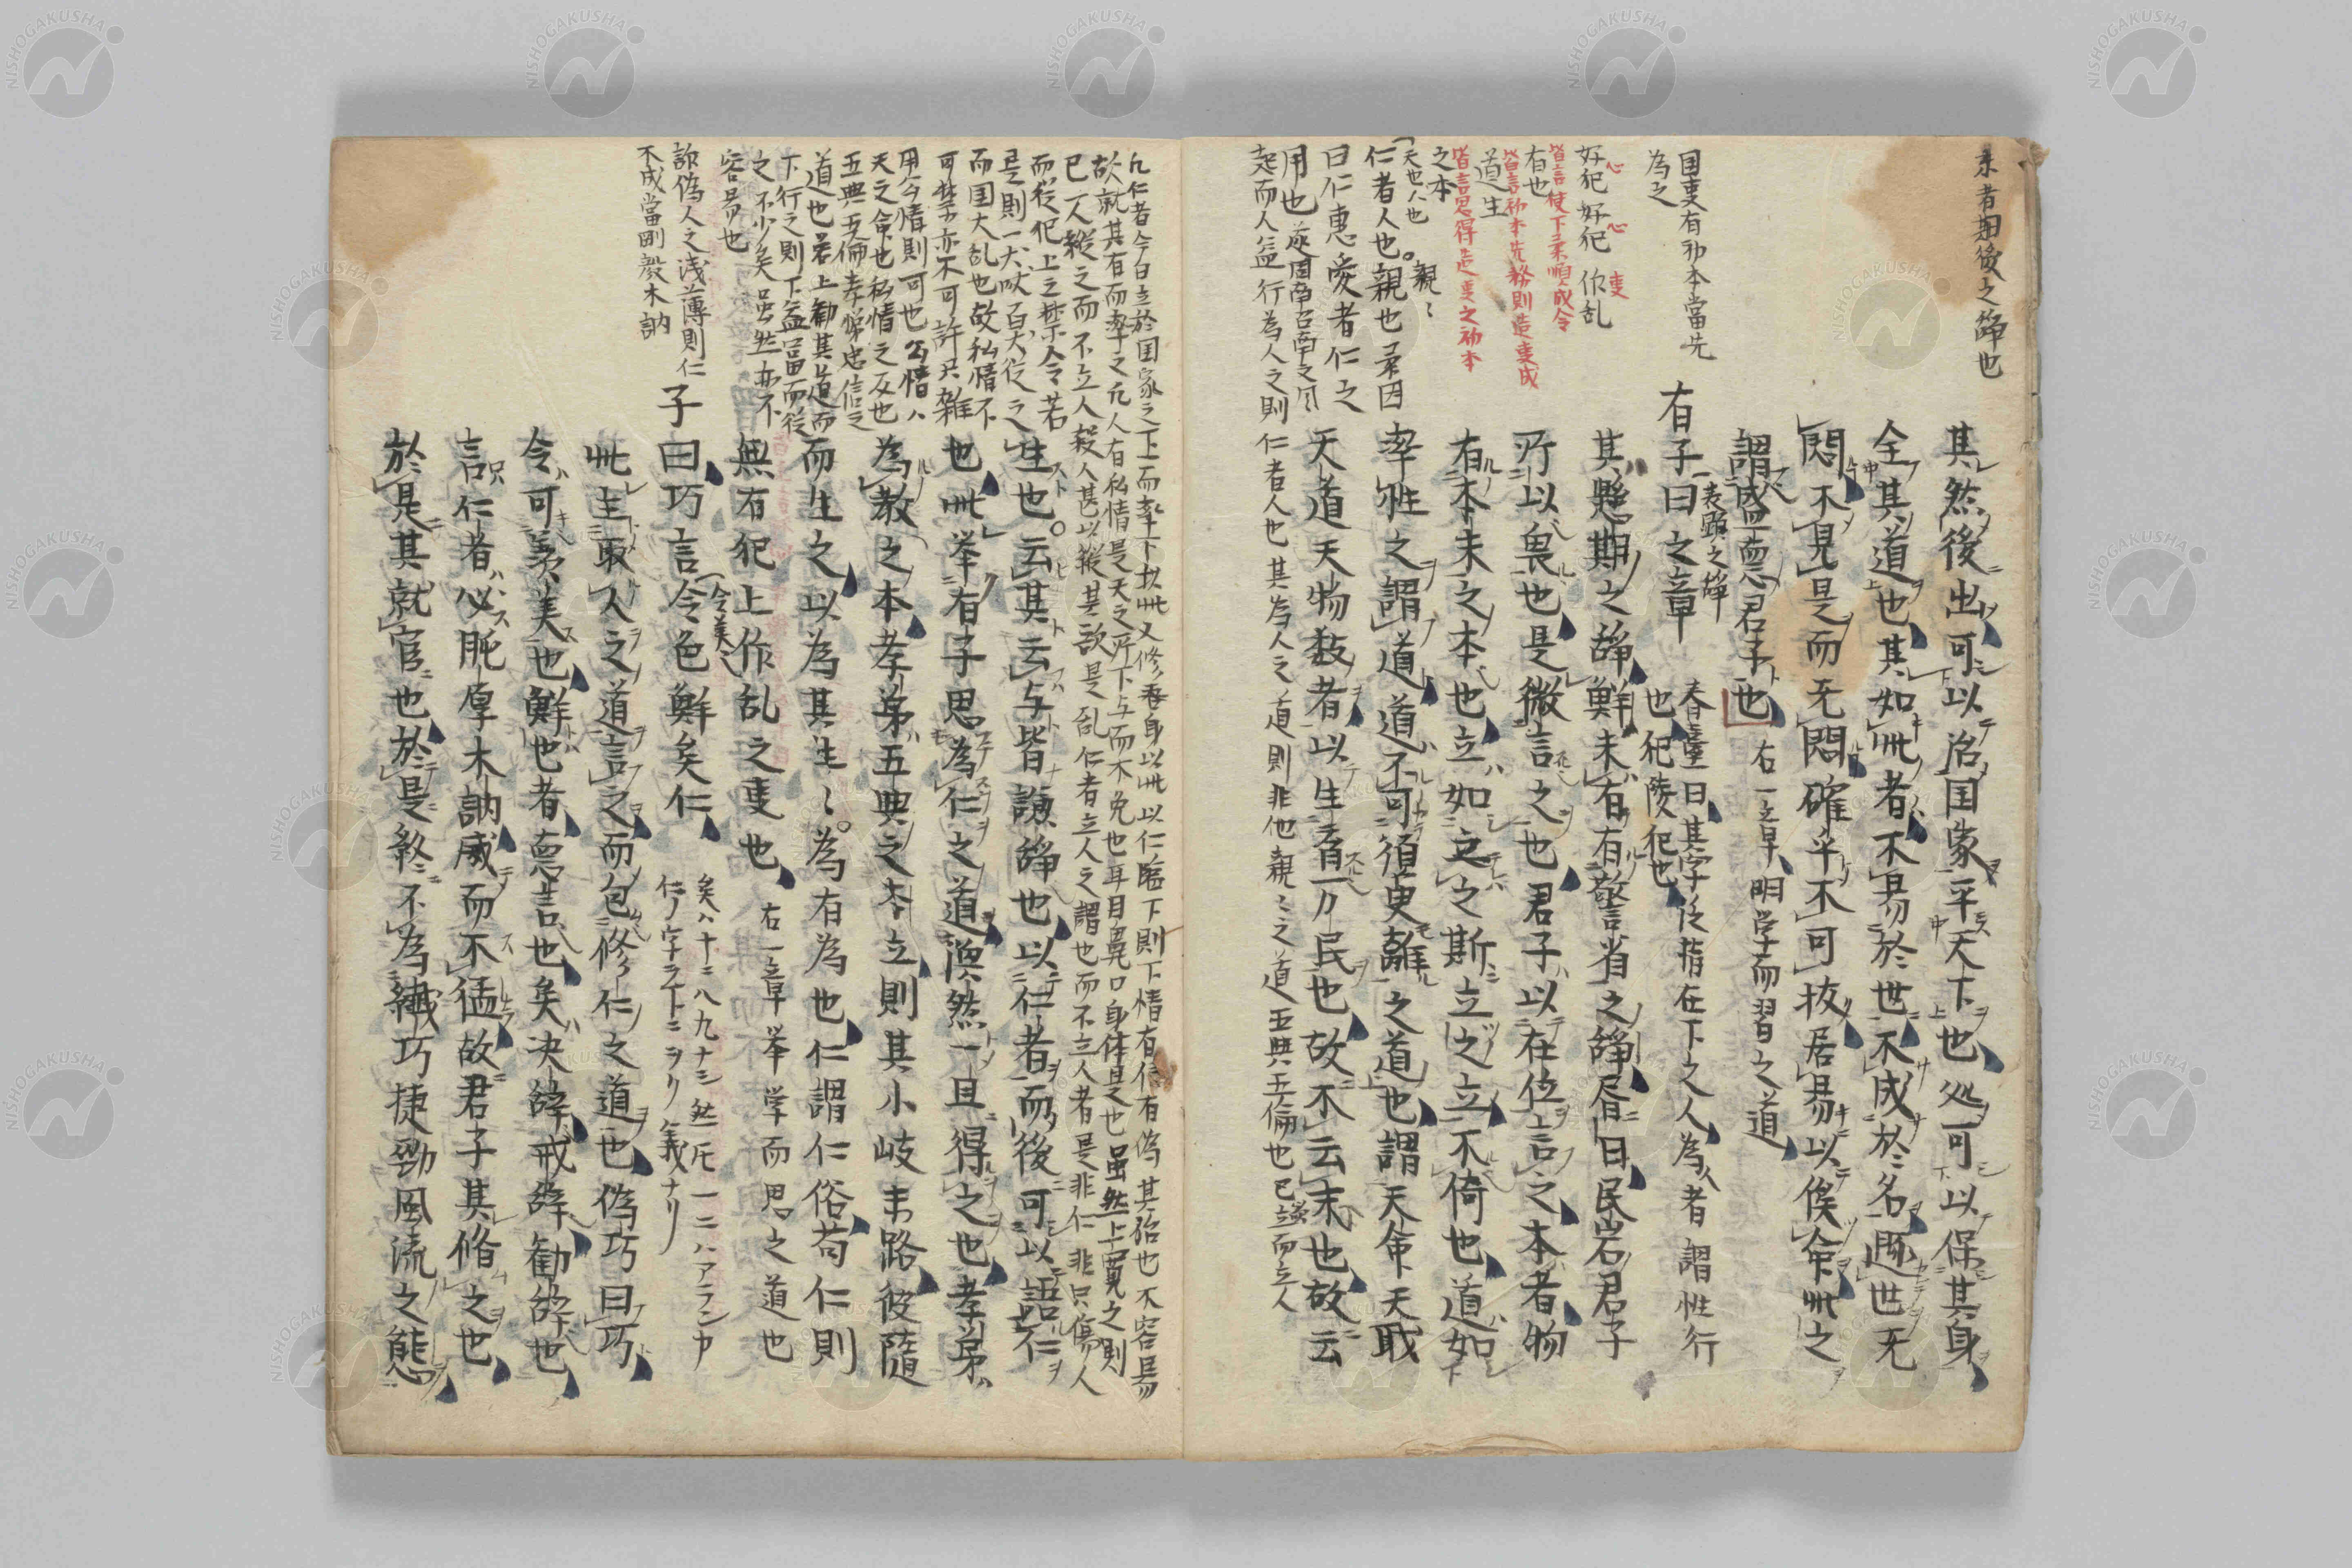 末者期後之辞也
其然後出可以治国家平天下也処可以保其身
全其道也其如此者不易於世不成於名遯世无
悶不見是而无悶確乎不可抜居易以俟命此之
謂盛悳君子也
右一章明学而習之道
国事有初本當先
為之
有子曰之章
表顕之辞
春臺曰其字泛指在下之人為人者謂性行
也犯陵犯也
好犯好犯作乱
心心事
皆言使下柔順成令
有也
其懸期之辞鮮未有有警省之辞孱曰民岩君子
所以畏也是微言之也君子以在位言之本者物
皆言初本先務則造事成
道生
皆言思得造事之初本
之本
有本末之本也立如立之斯立之立不倚也道如
率性之謂道道不可須臾離之道也謂天命天職
天也人也
仁者人也親親也承因
曰仁恵愛者仁之
用也
起而人益行為人之則
天道天物数者以生育万民也故不云末也故云
仁者人也其為人之道則非他親之道五典五倫也已立而立人
凡仁者今白立於国家之上而率下
故就其有而率之凡人有私情是天之所下与而不免也耳目鼻口身体是也虽然上寛之則
已人縦之而不立人殺人甚以縦其欲是乱仁者立人之謂也而不立人者是非仁非只傷人
而後犯上之禁令若
是則一犬吠百犬従之
而国大乱也故私情不
可禁亦不可許只雑
用公情則可也公情ハ
天之命也私情之反也
五典五倫孝悌忠信之
道也若上勧其道而
下行之則下益冨而従
之不少矣虽然亦不
容易也
生也云其云与皆謙辞也以仁者而後可以語仁
也此举有子思為仁之道渙然一旦得之也孝弟
為教之本孝弟五典之本立則其小岐末路彼隨
而生之以為其生〻為有為也仁謂仁俗苟仁則
無有犯上作乱之事也
右一章举学而思之道也
詐偽人之浅薄則仁
不成當剛毅木訥
子曰巧言令色鮮矣仁
令美
矣ハ十ニ八九ナニ然圧一二ハアランカ
仁ノ字ラ下ニヲリ義ナリ
此主取人之道言之而包修仁之道也偽巧曰巧
令可羨美也鮮也者悳言也矣决辞戒辞勧辞也
言仁者必肫厚木訥威而不猛故君子其脩之也
於是其就官也於是終不為繊巧捷勁風流之態